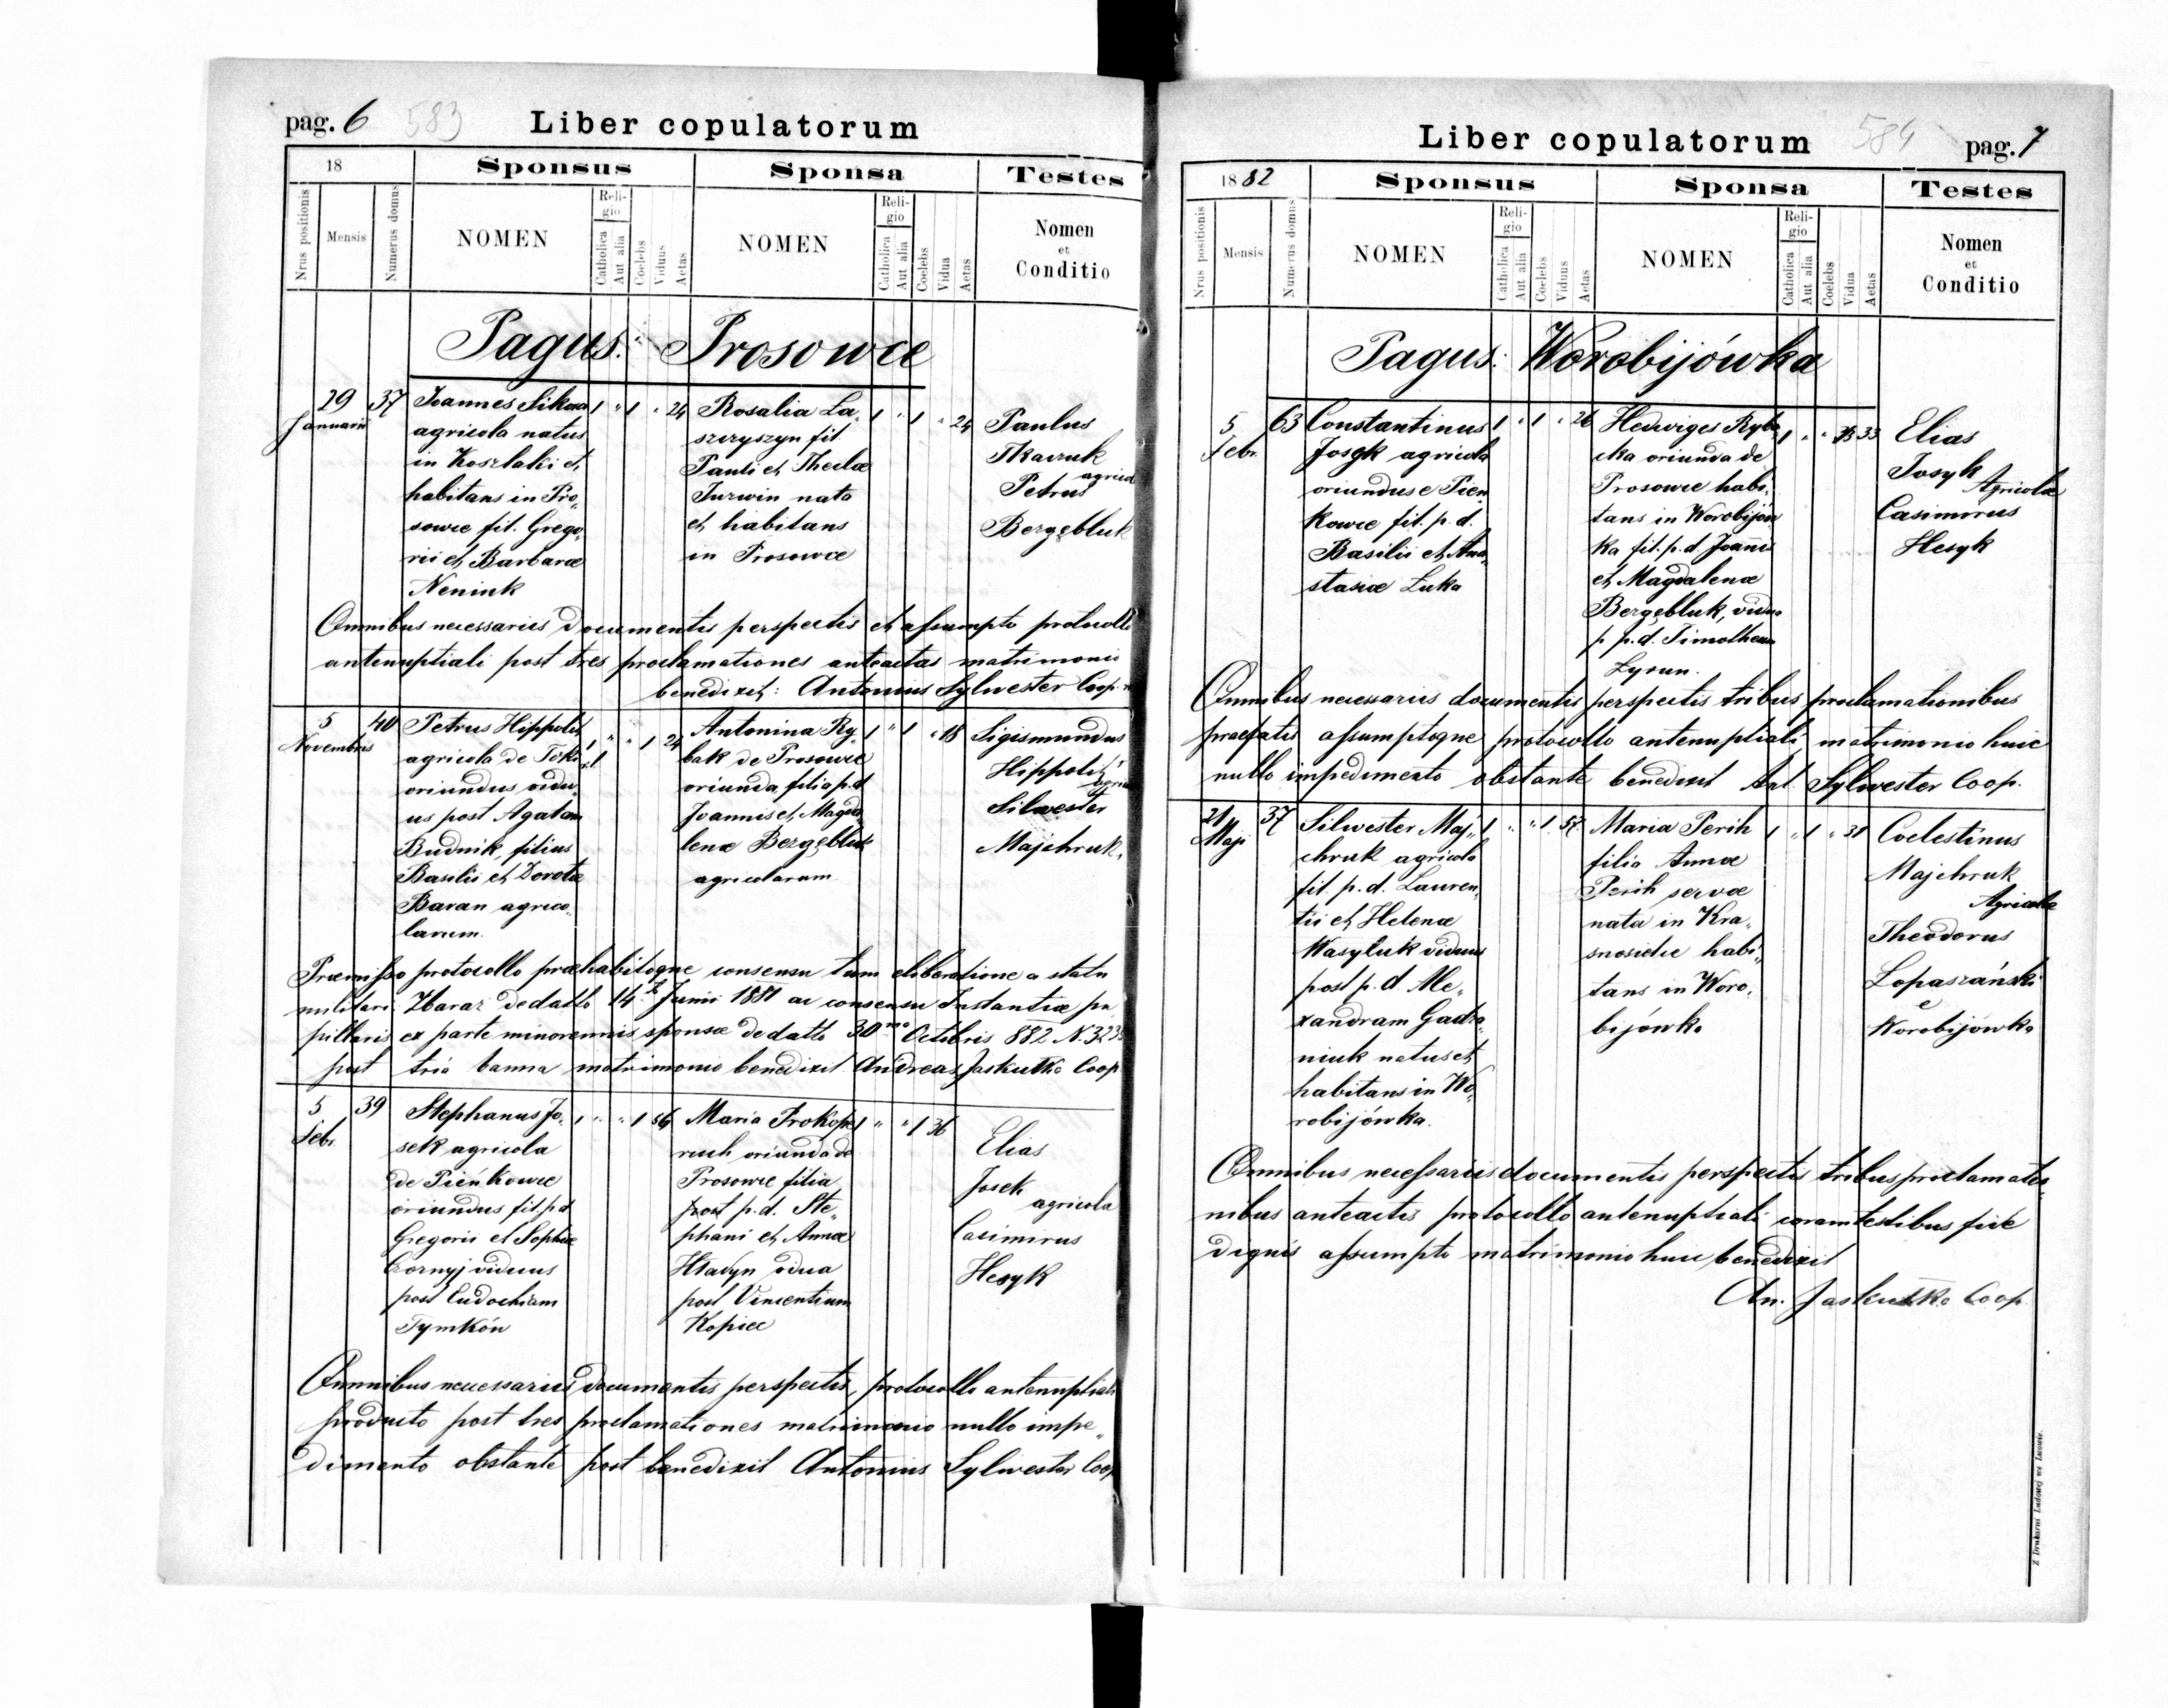 pag. 6 583 Liber copulatorum
18 Sponsus Sponsa Testes
Nrus positionis Mensis Numerus domus NOMEN Religio Catholica Aut alia Coelebs Viduus Aetas NOMEN Religio Catholica Aut alia Coelebs Vidua Aetas Nomen et Conditio
Pagus: Prosowce
29 Januarii 37
Joannes Sikora
agricola natus
in Koszlaki et
habitans in Pro„
sowce fil. Grego„
rii et Barbarae
Nenink
1 " 1 " 24
Rosalia La„
szczyszyn fil.
Pauli et Theclae
Jurwin nata
et habitans
in Prosowce
1 " 1 " 24
Paulus
Tkaczuk
agricol
Petrus
Bergębluk
Omnibus necessariis documentis perspectis et assumpto protocollo
antenuptiali post tres proclamationes anteactas matrimonio
benedixit: Antonius Sylwester Coop.
5 Novembris 40
Petrus Hippolit
agricola de Toki
oriundus vidu„
us post Agatam
Budnik, filius
Basilii et Dorotae
Baran agrico„
larum.
1 " " 1 24
Antonina Ry„
bak de Prosowce
oriunda, filia p.d
Joannis et Magda
lenae Bergębluk
agricolarum
1 " 1 " 18
Sigismundus
Hippolit
Silwester
Majchruk.
Praemisso protocollo praehabitoque consensu tum eliberatione a statu
militari Zbaraz dedatto 14. Junii 1881 ac consensu Instantiae pu
pillaris ex parte minorennis sponsae dedatto 30mo Octobris 882 N.
post tria banna matrimonio benedixit Andreas Jaskutko Coop
5 Febr. 39
Stephanus Jo„
sek agricola
de Pieńkowce
oriundus fil. p.d
Gregorii et Sophiae
Czornyj viduus
post Eudochiam
Tymków
1 " " 1 56
Maria Prokopo
oriunda de
Prosowce filia
post p.d. Ste„
phani et Annae
Hladyn vidua
post Vincentium
Kopiec
1 " " 1 36
Elias
Josek
agricola
Casimirus
Hesyk
Omnibus necessariis documentis perspectis, protocollo antenuptiali
producto post tres proclamationes matrimonio nullo impe„
dimento obstante post benedixit Antonius Sylwester Coop
Liber copulatorum 584 pag. 7
1882 Sponsus Sponsa Testes
Nrus positionis Mensis Numerus domus NOMEN Religio Catholica Aut alia Coelebs Viduus Aetas NOMEN Religio Catholica Aut alia Coelebs Vidua Aetas Nomen et Conditio
Pagus: Worobijówka
5 Febr. 63
Constantinus
Josyk agricola
oriundus e Pien
kowce fil. p.d.
Basilii et Ana„
stasiae Luka
1 " 1 " 26
Hedwiges Ryba
cka oriunda de
Prosowce habi„
tans in Worobijów
ka fil. p.d Joannis
et Magdalenae
Bergębluk, vidua
p p.d. Timotheum
Zysun.
1 " " 33
Elias
Josyk
Agricolae
Casimirus
Hesyk
Omnibus necessariis documentis perspectis tribus proclamationibus
praefatis assumptoque protocollo antenuptiali matrimonio huic
nullo impedimento obstante benedixit Ant. Sylwester Coop.
21 Maji 37
Silwester Maj„
chruk agricola
fil. p.d. Lauren„
tii et Helenae
Wasyluk viduus
post p.d Ale„
xandram Gadza„
niuk natus et
habitans in Wo„
robijówka.
1 " " 1 57
Maria Perih
filia Annae
Perih servae
nata in Kra„
snosielce habi„
tans in Woro„
bijówka
1 " 1 " 31
Coelestinus
Majchruk
Agricolae
Theodorus
Lopaszański
e
Worobijówka
Omnibus necessariis documentis perspectis tribus proclamatio„
nibus anteactis protocollo antenuptiali coram testibus fide
dignis assumpto matrimonio huic benedixit
An. Jaskutko Coop
Z Drukarni Ludowej we Lwowie.